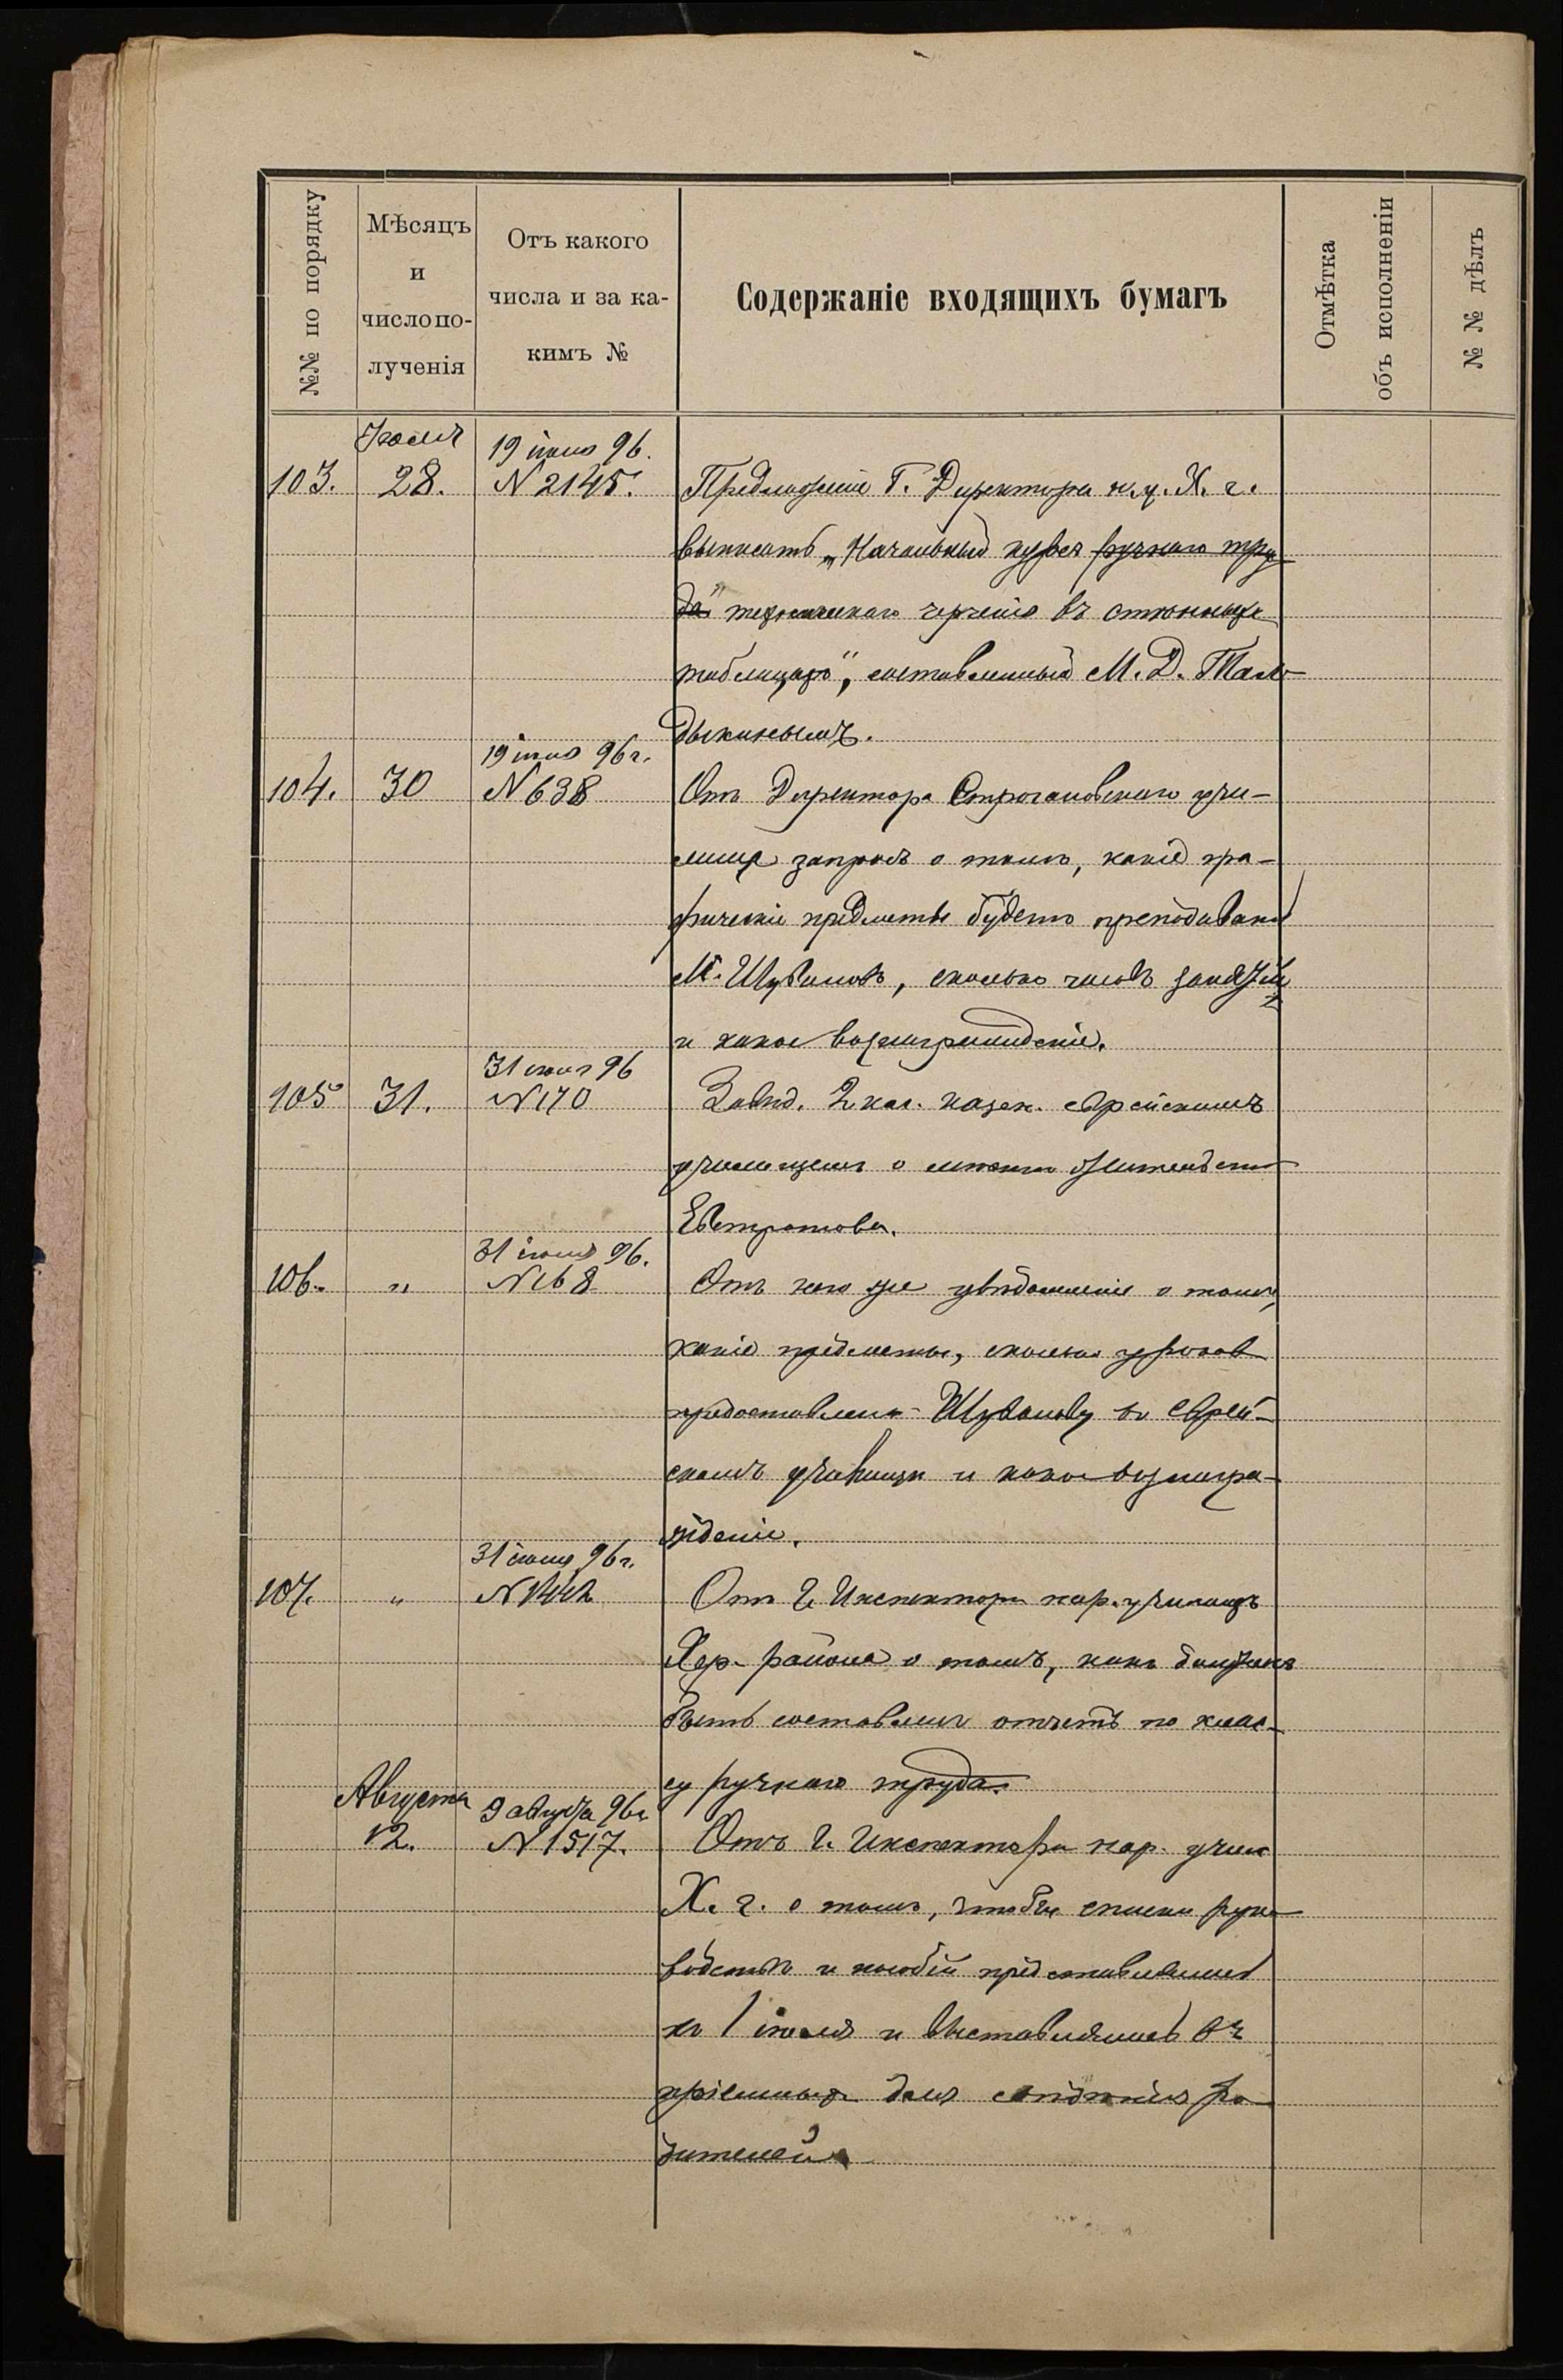 №№ по порядку
Мѣсяцъ
и
число по-
лученія
Отъ какого
числа и за ка-
кимъ №
Содержаніе входящихъ бумагъ
Отмѣтка
объ исполненіи
№ № дѣлъ
Іюля
19 іюля 96.
103. 28. N 2145. Предложеніе Г. Директора н. у. Х. г.
выписать „Начальный курсъ ручнаго тру-
да" техническаго черченія въ стѣнныхъ
таблицахъ", составленный М. Д. Тал-
дыкинымъ.
19 іюля 96 г.
104. 30 N 638 Отъ Директора Строгановскаго учи-
лища запросъ о томъ, какіе гра-
фическіе предметы будетъ преподавать
М. Шуваловъ, сколько часовъ занятій
и какое вознагражденіе.
31 іюля 96
105 31. N 170 Завѣд. 2 кл. казен. еврейскимъ
училищемъ о
Евстратова.
31 іюля 96.
106. " N 168 Отъ него же увѣдомленіе о томъ,
какіе предметы, сколько уроковъ
предоставлено Шувалову въ еврей-
скомъ училищѣ и какое вознагра-
жденіе.
31 іюля 96 г.
107. " N 1442 Отъ Г. Инспектора нар. училищъ
Хер. района о томъ, какъ долженъ
быть составленъ отчетъ по клас-
су ручнаго труда.
Августа 9 августа 96 г.
12. N 1517. Отъ Г. Инспектора нар. учил.
Х. г. о томъ, чтобы списки руко-
водствъ и пособій представлялись
къ 1 іюля и выставлялись въ
пріемныхъ для свѣдѣнія ро-
дителей.